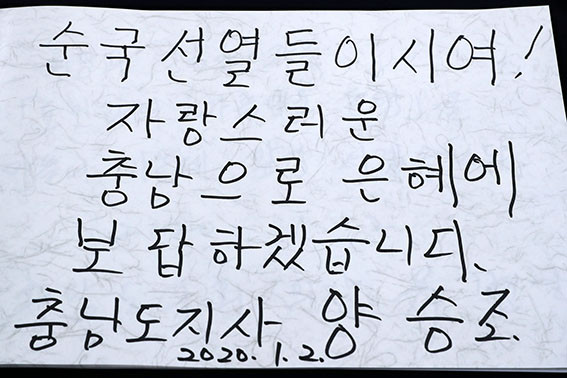 순국선열들이시여!
자랑스러운
충남으로 은혜에
보답하겠습니다.
충남도지사 양승조.
2020. 1. 2.